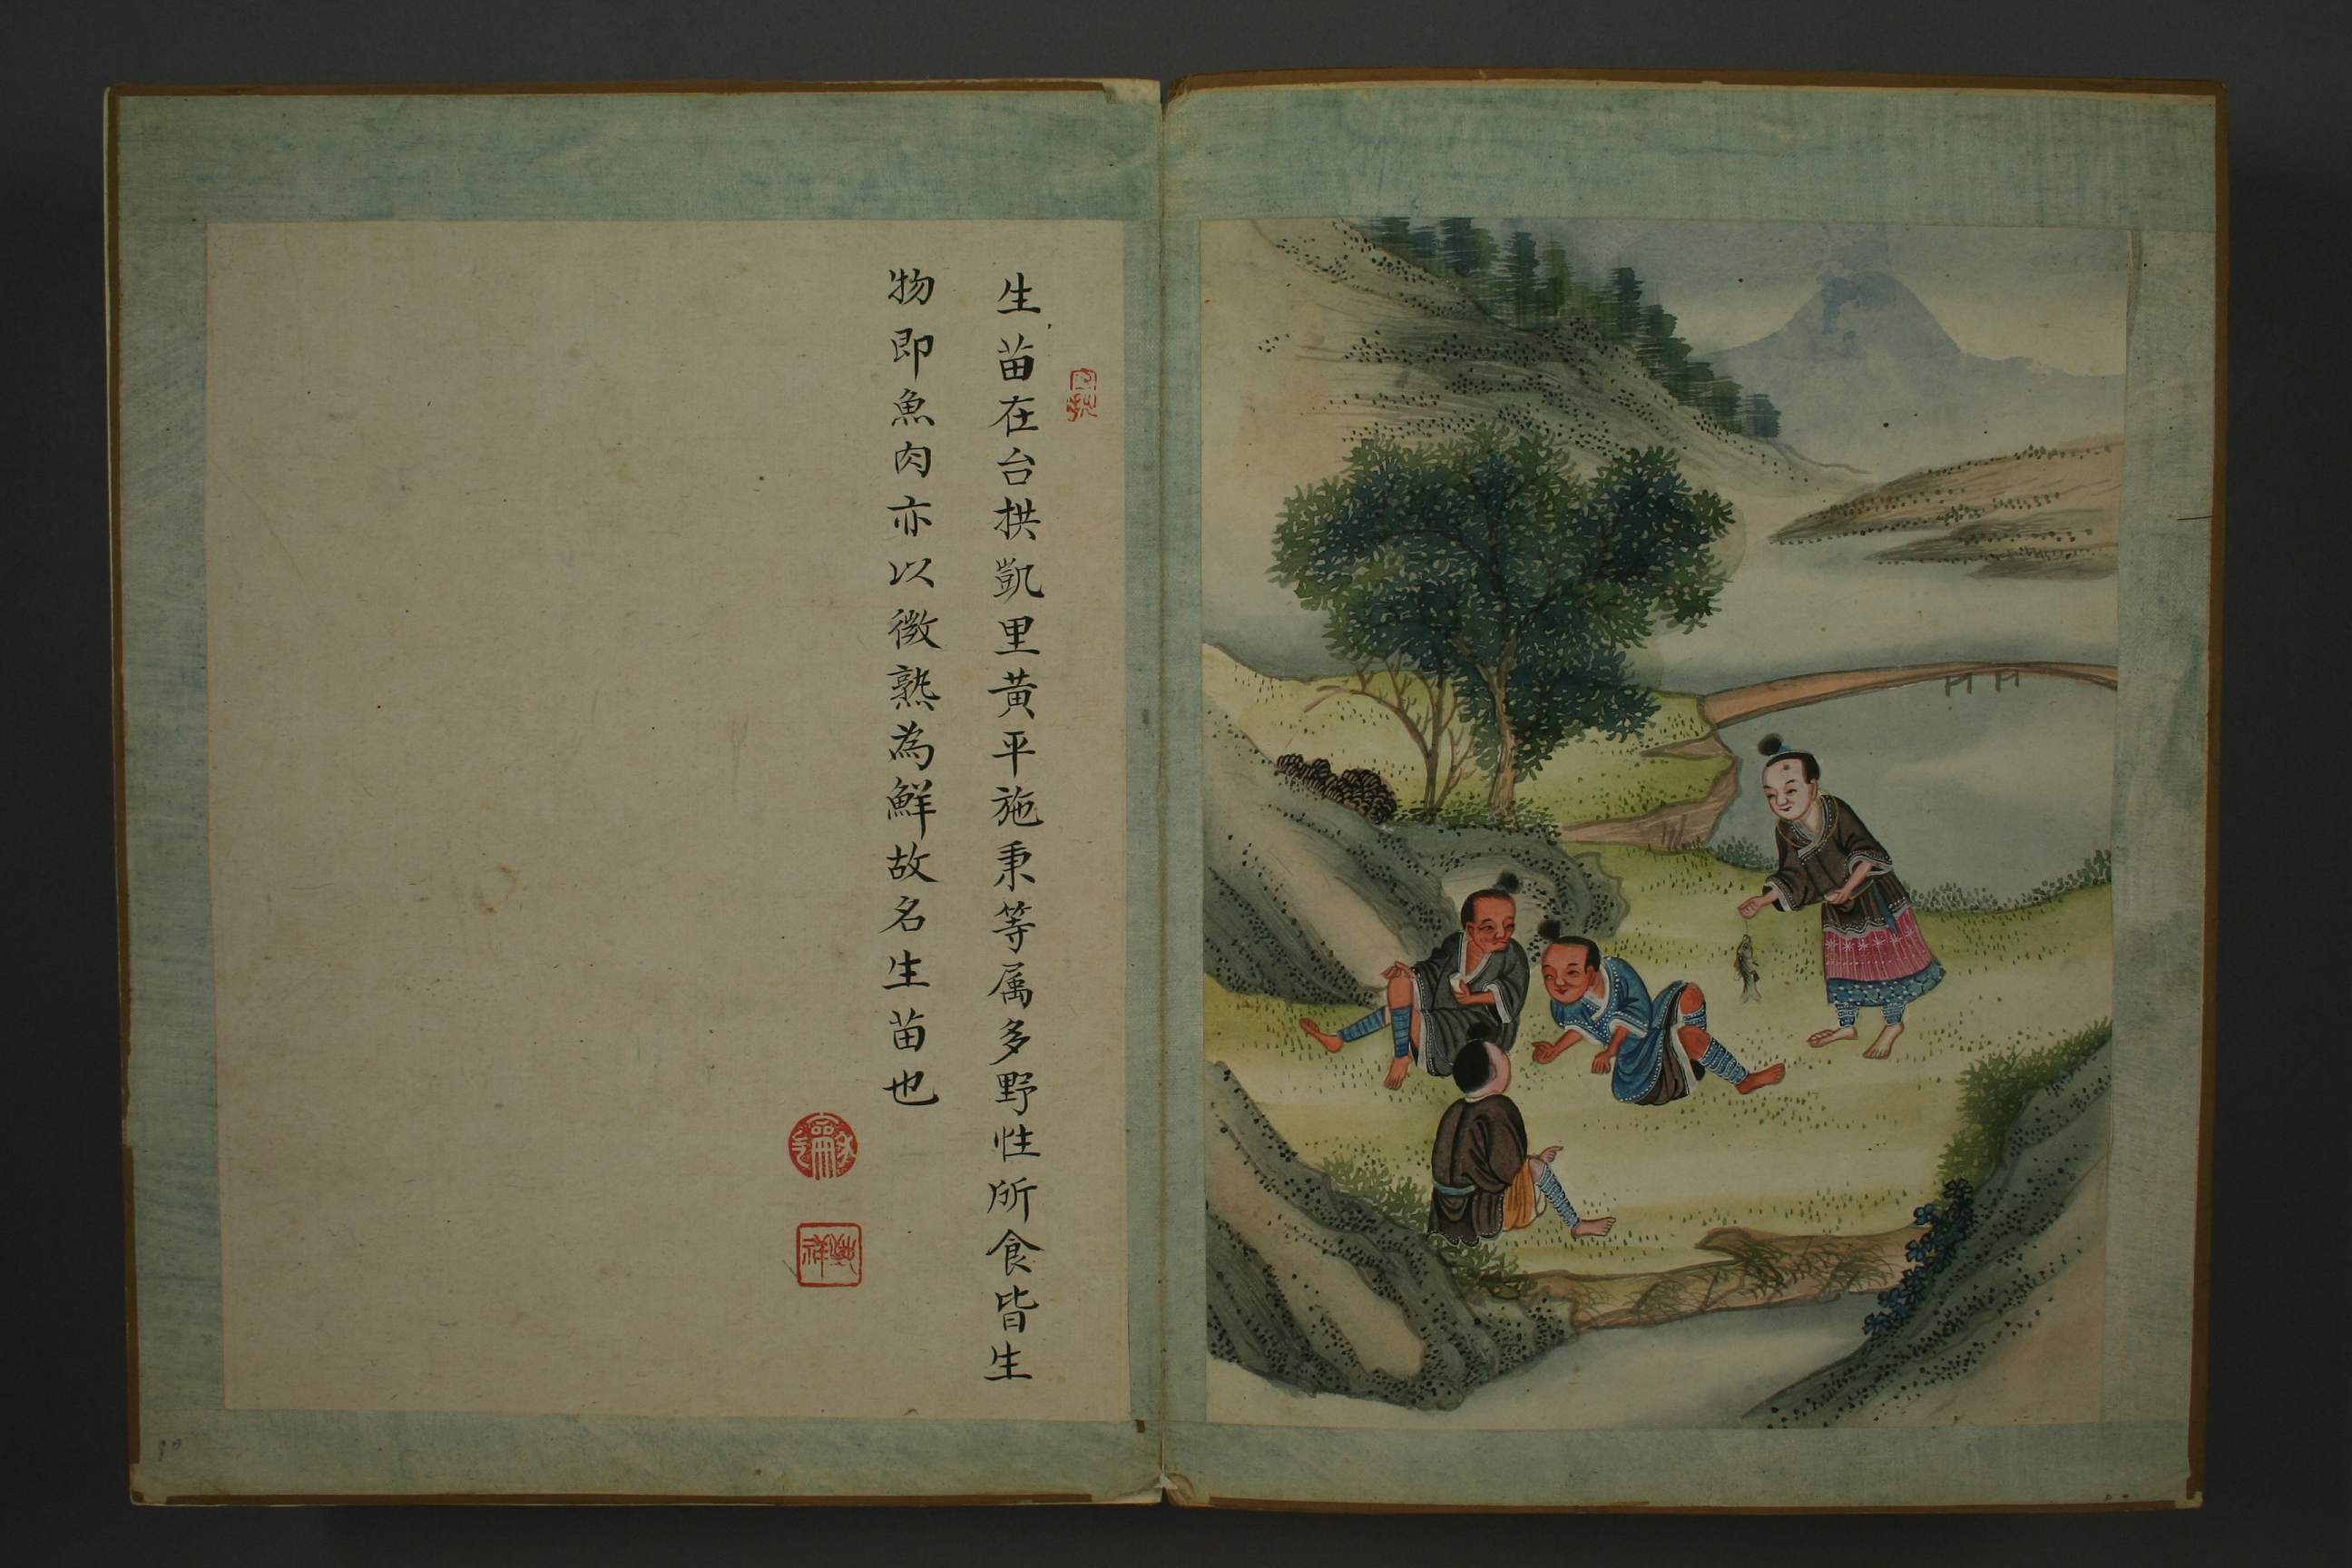 生苗在台拱凱里黃平施秉等属多野性所食皆生
物即魚肉亦以微熟為鮮故名生苗也